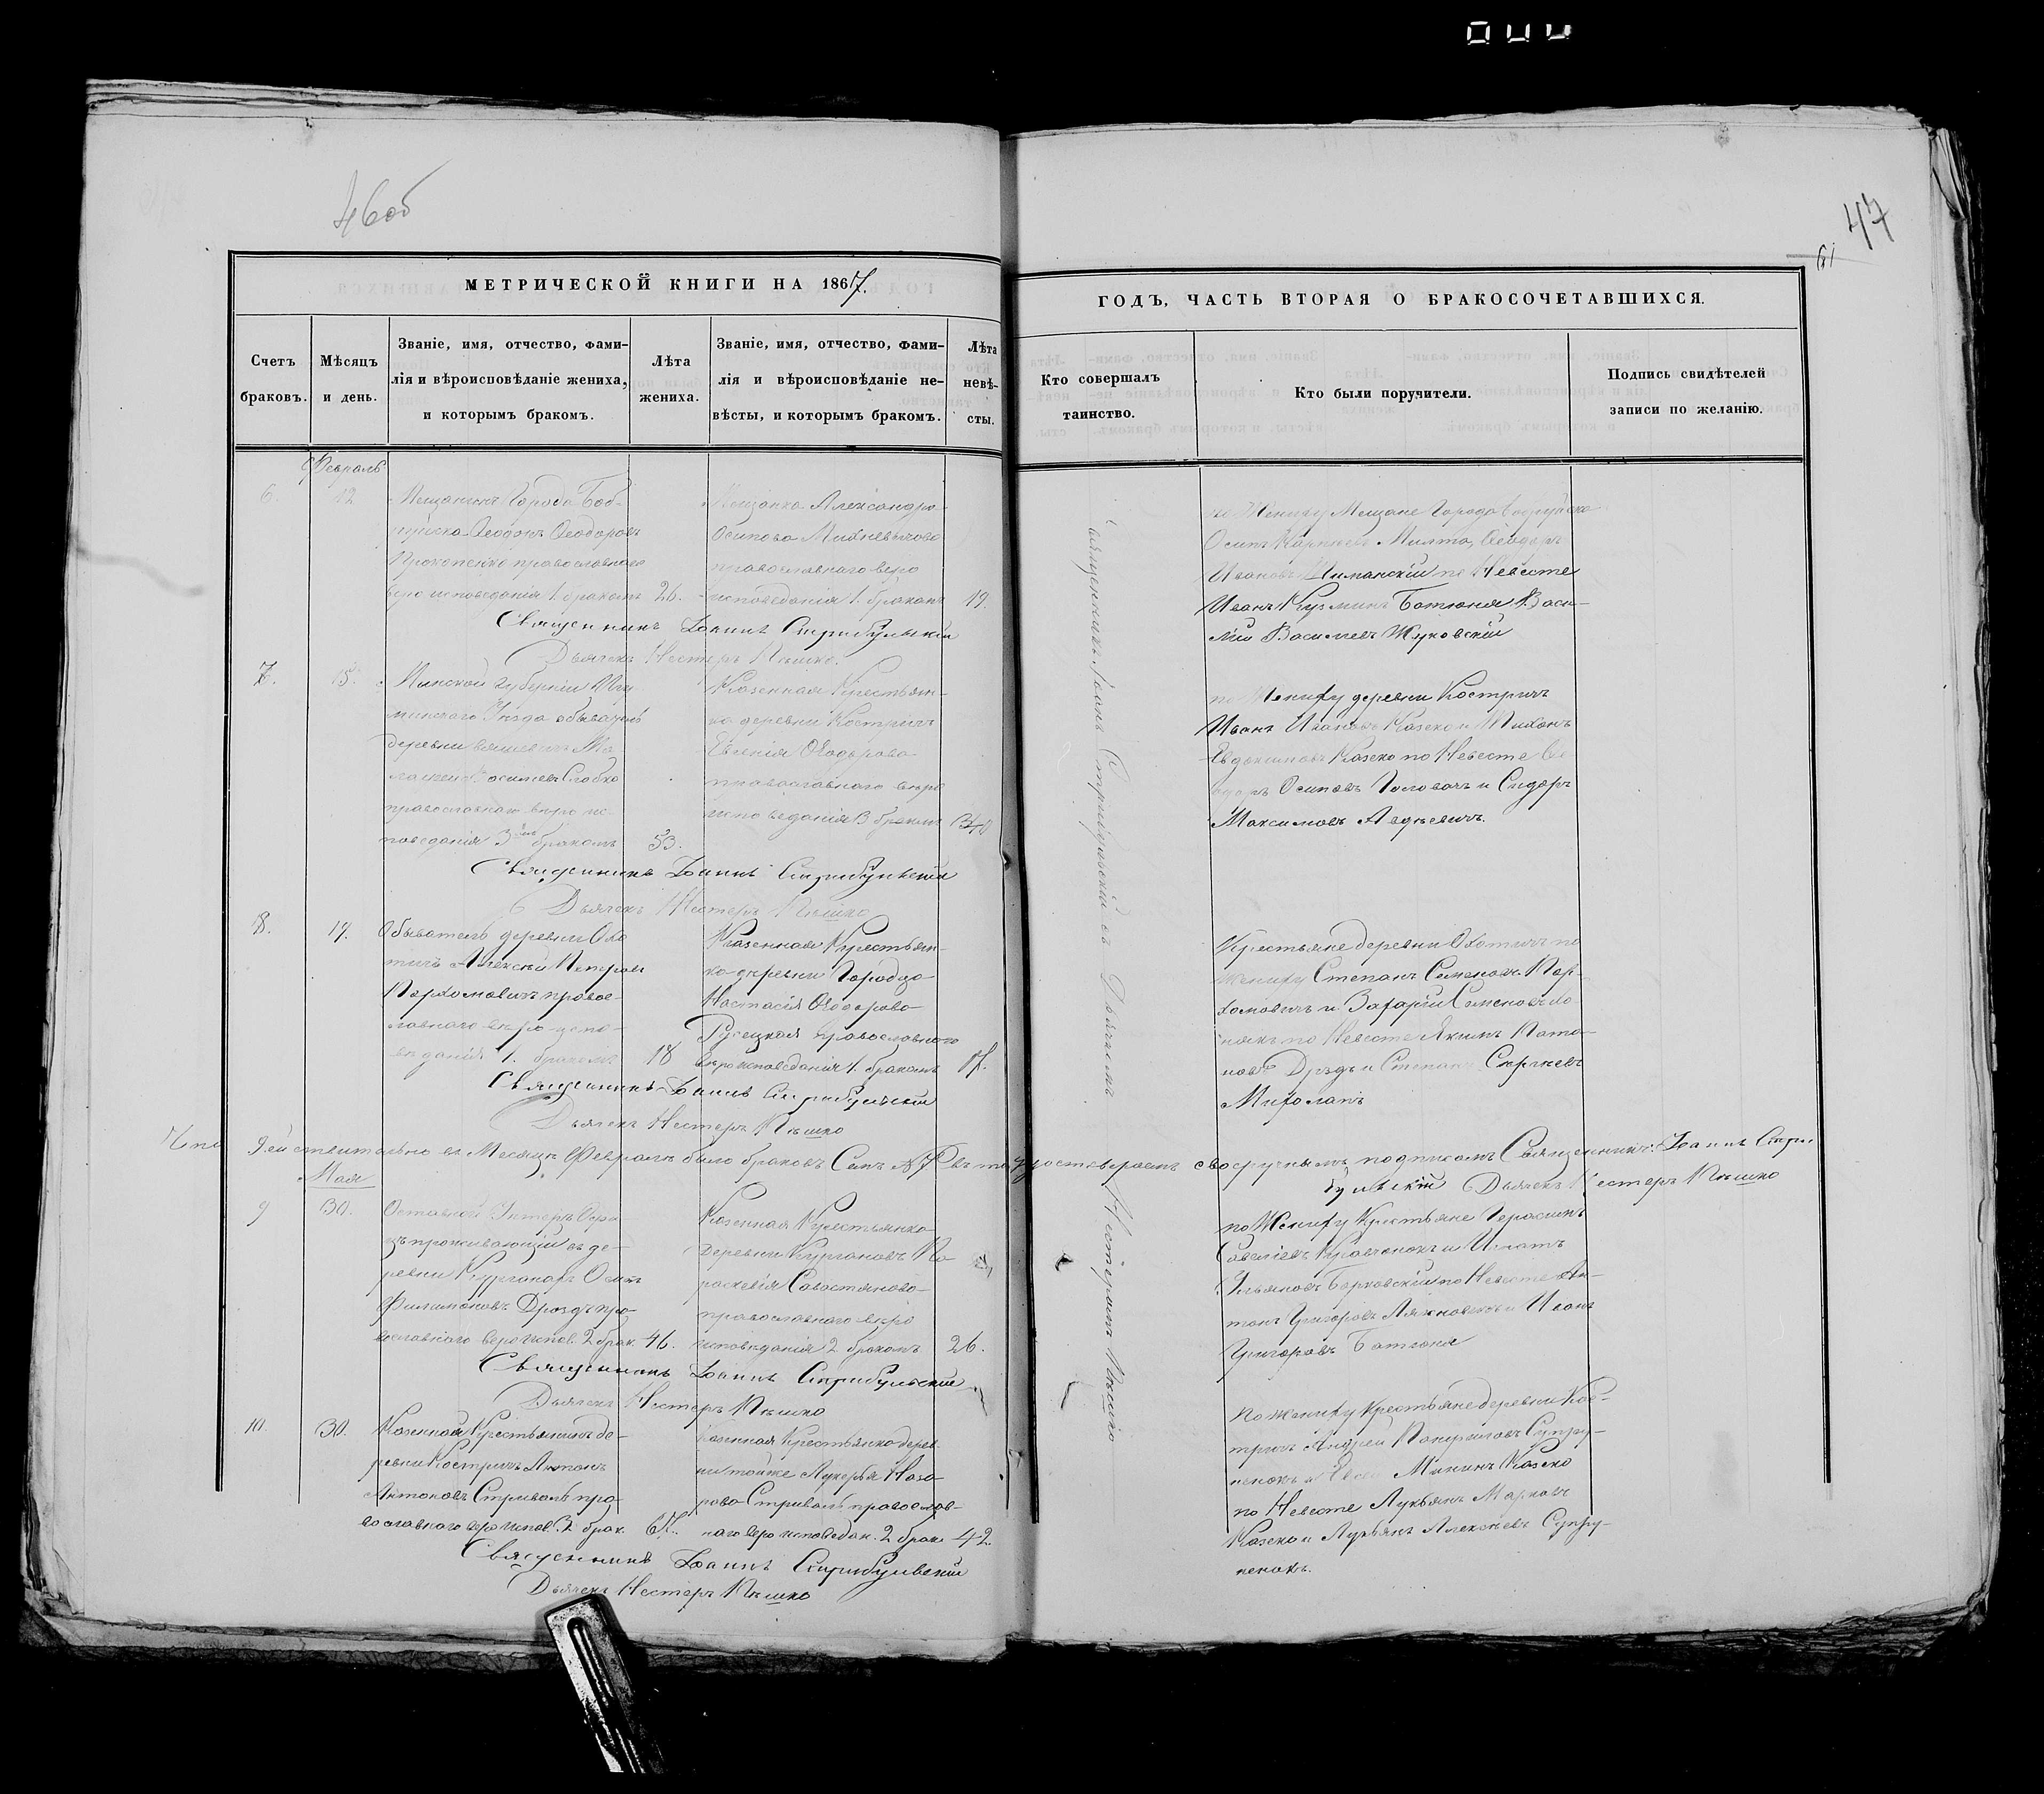 46об
47
61
МЕТРИЧЕСКОЙ КНИГИ НА 1867.
ГОДЪ, ЧАСТЬ ВТОРАЯ О БРАКОСОЧЕТАВШИХСЯ.
Счетъ браковъ.
Мѣсяцъ и день.
Званіе, имя, отчество, фами-
лія и вѣроисповѣданіе жениха,
и которымъ бракомъ.
Лѣта
жениха.
Званіе, имя, отчество, фами-
лія и вѣроисповѣданіе не-
вѣсты, и которымъ бракомъ.
Лѣта
невѣ-
сты.
Кто совершалъ
таинство.
Кто были поручители.
Подпись свидѣтелей
записи по желанію.
Февраль
6.
12
Мещанинъ Города Боб-
руйска Ѳеодоръ Ѳеодоровъ
Прокопенко православнаго
веро исповеданія 1. бракомъ
26.
Мещанка Александра
Осипова Михневичова
православнаго веро
исповеданія 1. бракомъ
19.
по Жениху Мещане Города Бобруйска
Осипъ Карпиевъ Милто, Ѳеодоръ
Ивановъ Шиманскій по Невесте
Иванъ Кузминъ Батюня Васи-
лій Василіевъ Жуковскій
Священникъ Іоаннъ Стрибульскій
Дьячекъ Нестеръ Пѣшко.
7.
15.
Минской Губерніи Игу
менского Уѣзда обыватель
деревни
Василіев
православнаго вѣро ис-
поведанія 3 бракомъ
53.
Казенная Крестьян-
ка деревни Костричъ
Евгенія Ѳеодорова
православнаго вѣро
исповеданія 3 бракомъ
40
по Жениху деревни Костричъ
Иванъ Ивановъ Казеко и Тихонъ
Евдокимовъ Казеко по Невесте Ѳе
одоръ Осиповъ Головачъ и Сидоръ
Максимовъ Авдѣевичъ.
Священникъ Іоаннъ Стрибульскій
Дьячекъ Нестеръ Пѣшко
8.
19.
Обыватель деревни Охо
тичъ Алексѣй Петровъ
Пархомовичъ правос-
лавнаго вѣро-испо-
вѣданія 1. бракомъ
18
Казенная Крестьян-
ка деревни Городца
Настасія Ѳеодорова
Русецкая православнаго
вѣроисповеданія 1. бракомъ
17.
Крестьяне деревни Охотичъ по
жениху Степанъ Семеновъ Пар-
хомовичъ и Захарій Семеновъ
по Невесте Якимъ
Дрздъ и Степанъ Сергіевъ
Священникъ Іоаннъ Стрибульскій
Дьячекъ Нестеръ Пѣшко
Что Действительно въ Месяцѣ Февралѣ было браковъ въ томъ удостовѣряемъ своеручнымъ подписомъ Священникъ Іоаннъ Стри-
бульскій Дьячекъ Нестеръ Пѣшко
Мая
9
30.
Оставной Унтеръ Офи-
церъ проживающій въ де-
ревни Курганахъ Осипъ
Филимоновъ Дроздъ пра-
вославнаго вероиспов. 2 брак.
46.
Казенная Крестьянка
деревни Кургановъ Па
раскевія Савостянова
православнаго вѣро
исповѣданія 2 бракомъ
26.
по Жениху Крестьяне Герасимъ
Савеліевъ Кравченокъ и Игнатъ
Ульяновъ Барковскій по Невесте Ан-
тонъ Григоровъ и Иванъ
Григоровъ Батюня
Священникъ Іоаннъ Стрибульскій
Дьячекъ Нестеръ Пѣшко
10.
30.
Казенный Крестьянинъ де-
ревни Костричъ Антонъ
Антоновъ Стриваль пра-
вославнаго вероиспов. 2 брак.
Казенная Крестьянка дерев-
ни тойже Лукерья Наза-
рова Стриваль православ-
наго вероисповедан. 2 брак.
42.
По жениху Крестьяне деревни Кос-
тричъ Андрей Панфиловъ Супру-
ненокъ и Минин Казеко
по Невесте Лукьянъ Марковъ
Казеко и Лукьянъ Алексѣевъ Супру-
ненокъ.
Священникъ Іоаннъ Стрибульскій
Дьячекъ Нестеръ Пѣшко
Священникъ Іоанъ Стрибульскій съ Дьячкомъ Нестеромъ Пѣшко